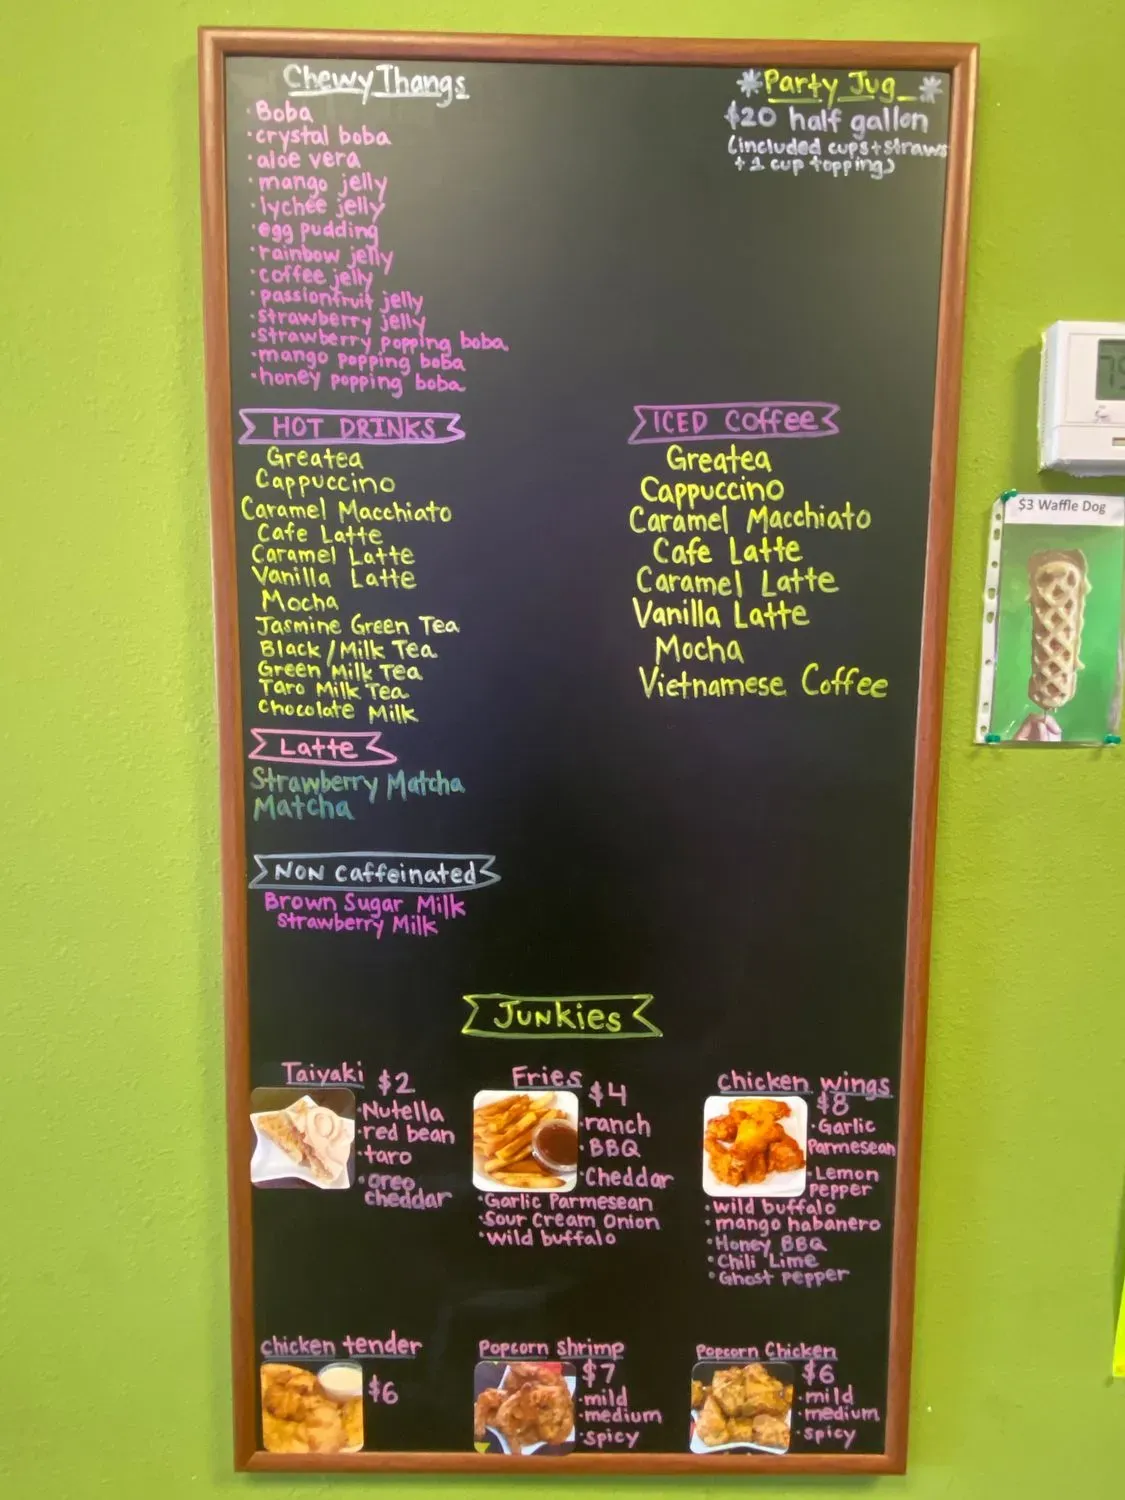 Chewy Thangs
·Boba
·crystal boba
·aloe vera
·mango jelly
·lychee jelly
·egg pudding
·rainbow jelly
·coffee jelly
·passionfruit jelly
·strawberry jelly
·strawberry popping boba
·mango popping boba
·honey popping boba
Party Jug
$20 half gallon
(included cups+straws
+ 1 cup topping)
HOT DRINKS
Greatea
Cappuccino
Caramel Macchiato
Cafe Latte
Caramel Latte
Vanilla Latte
Mocha
Jasmine Green Tea
Black/Milk Tea
Green Milk Tea
Taro Milk Tea
Chocolate Milk
ICED Coffee
Greatea
Cappuccino
Caramel Macchiato
Cafe Latte
Caramel Latte
Vanilla Latte
Mocha
Vietnamese Coffee
Latte
Strawberry Matcha
Matcha
NON Caffeinated
Brown Sugar Milk
Strawberry Milk
JUNKIES
Taiyaki $2
·Nutella
·red bean
·taro
·oreo
cheddar
Fries $4
·ranch
·BBQ
·Cheddar
·Garlic Parmesean
·Sour Cream Onion
·Wild buffalo
chicken wings
$8
·Garlic
Parmesean
·Lemon
pepper
·Wild buffalo
·mango habanero
·Honey BBQ
·Chili Lime
·Ghost pepper
chicken tender
$6
Popcorn shrimp
$7
·mild
·medium
·spicy
Popcorn Chicken
$6
·mild
·medium
·spicy
$3 Waffle Dog